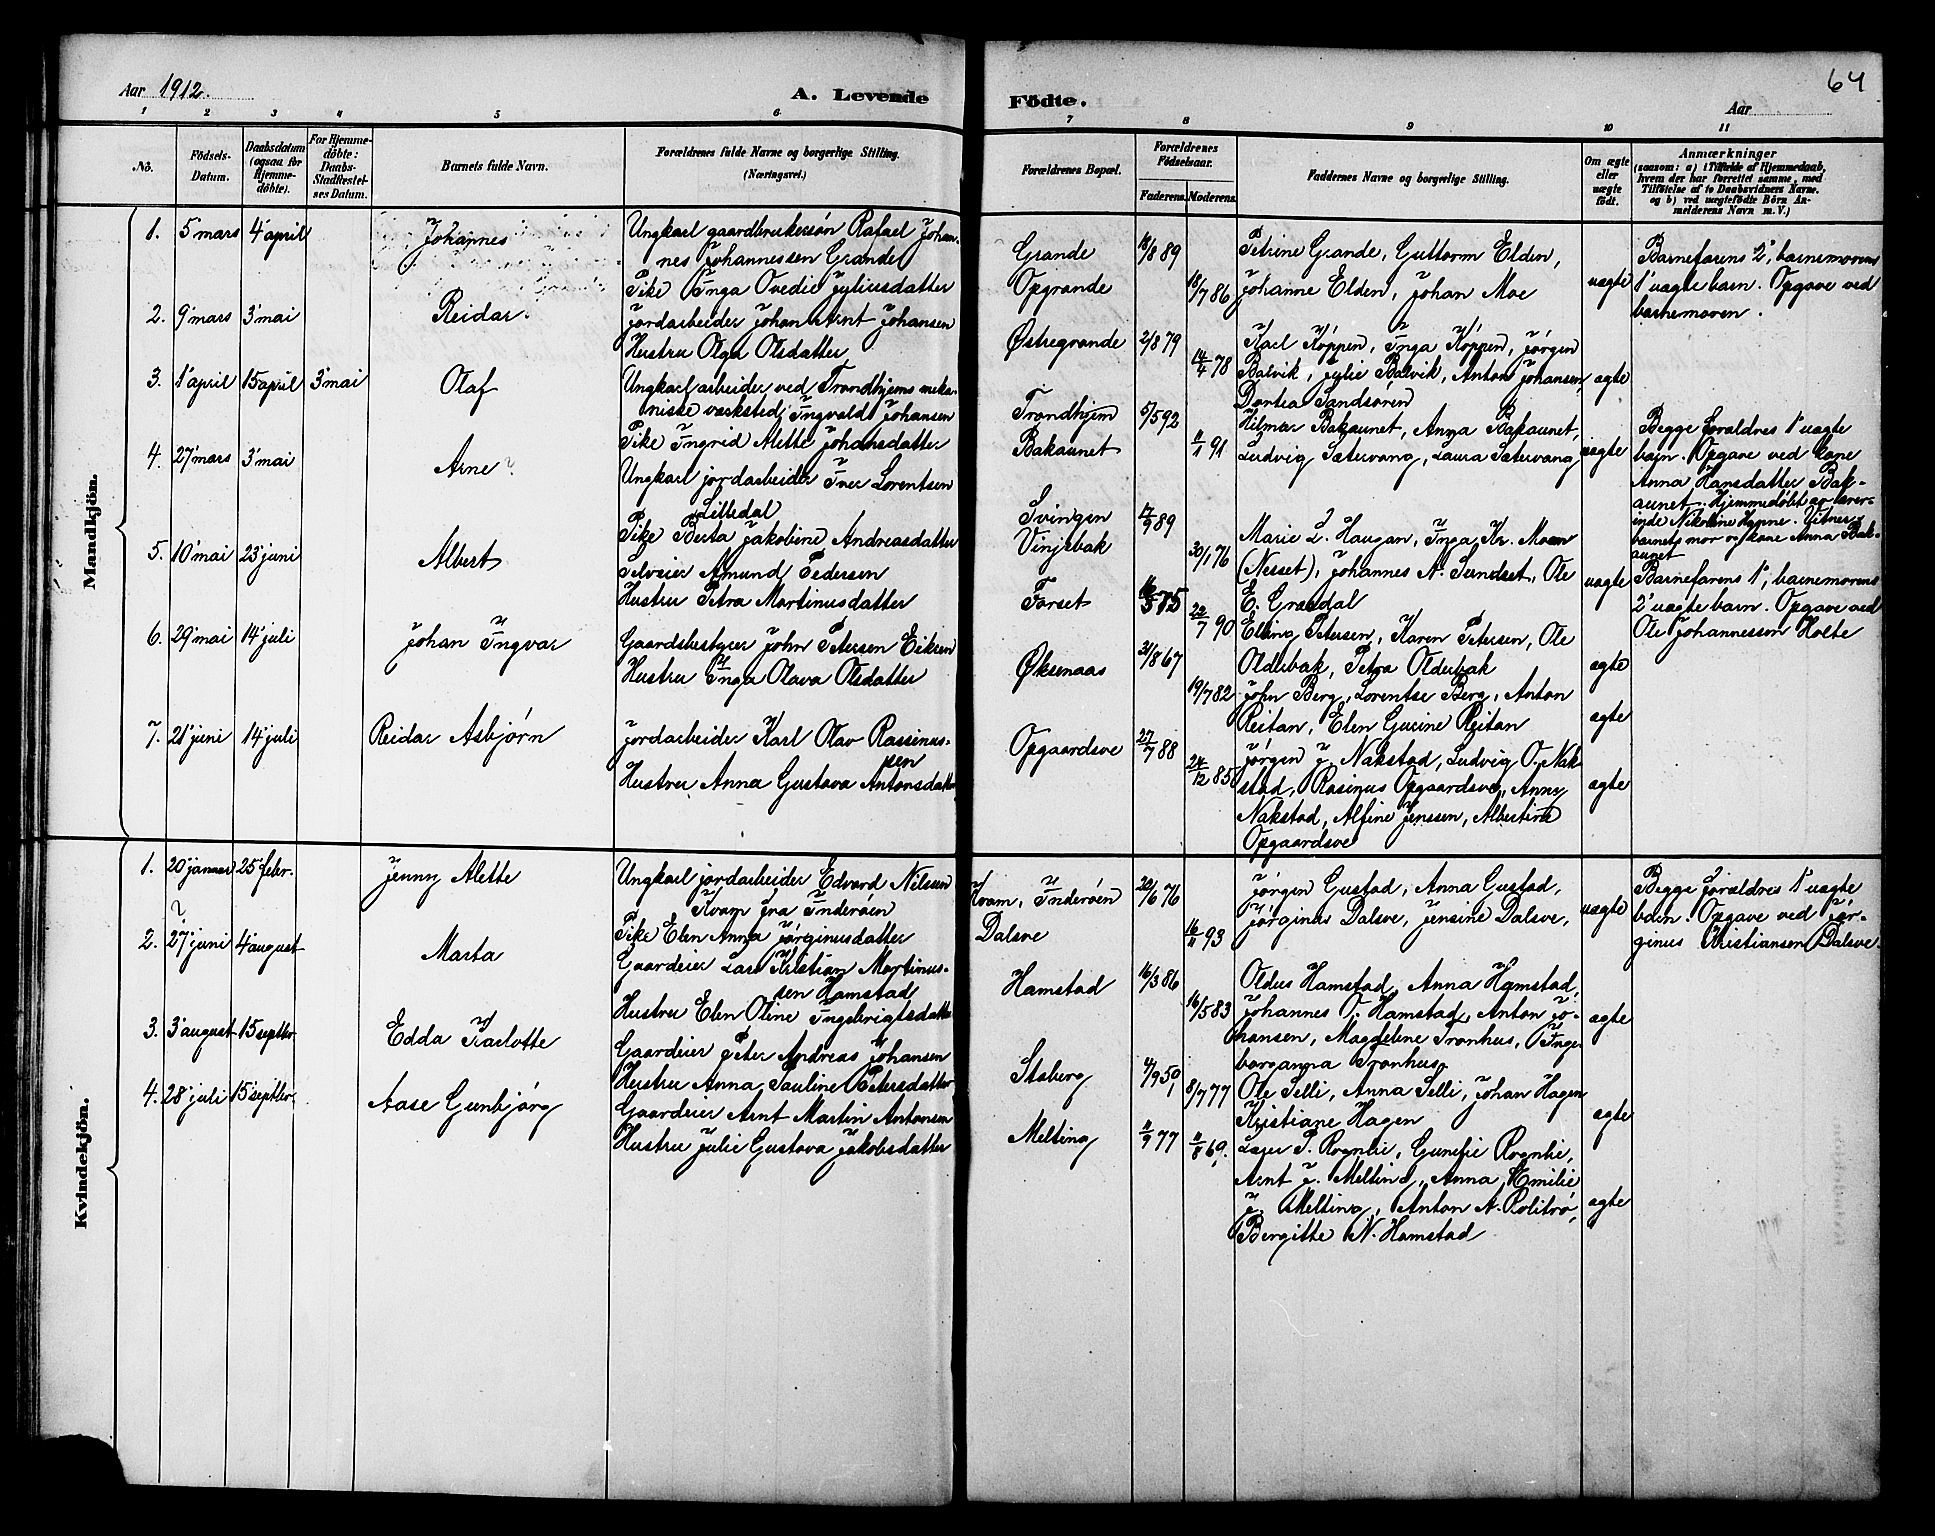 Aar 1912.
A. Levende
1 2 3 4 5 6
No.
Födsels-Datum.
Daabsdatum (ogsaa for Hjemme-döbte).
For Hjemme-döbte: Daabs-Stadfæstel-ses Datum.
Barnets fulde Navn.
Forældrenes fulde Navne og borgerlige Stilling.
(Næringsvei.)
Mandkjön.
1. 5 mars 4' april Johannes Ungkarl gaardbrukersøn Rafael Johan-
nes Johannessen Grande
Pike Inga Ovedie Jyliusdatter
2. 9' mars 3' mai Reidar. Jordarbeider Johan Arnt Johansen
Hustru Olga Olsdatter
3. 1' april 15 april 3' mai Olaf Ungkarl arbeider ved Trondhjems meka-
niske værksted, Ingvald Johansen
Pike Ingrid Alette Johansdatter
4. 27' mars 3' mai Arne Ungkarl jordarbeider Iver Lorentsen
Lilledal
Pike Berta Jakobine Andreasdatter
5. 10' mai 23' juni Albert Selveier Amund Pedersen
Hustru Petra Martinusdatter
6. 29' mai 14' juli Johan Ingvar Gaardsbestyrer John Petersen Eikrem
Hustru Inga Olava Olsdatter
7. 21' juni 14' juli Reidar Asbjørn Jordarbeider Karl Olav Rassinus-
sen
Hustru Anna Gustava Antonsdatter
Kvindekjön.
1. 20' januar 25' febr. Jenny Alette Ungkarl jordarbeider Edvard Nilsen
Kvam fra Inderøen
Pike Elen Anna Jørginusdatter
2. 27' juni 4' august Marta Gaardeier Lars Kristian Martinus-
sen Hamstad
Hustru Elen Oline Ingebrigtsdatter
3. 3' august 15 septbr Edda Karlotte Gaardeier Peter Andreas Johansen
Hustru Anna Pauline Petersdatter
4. 28' juli 15' septbr. Aase Gunbjørg Gaardeier Arnt Martin Antonsen
Hustru Julie Gustava Jakobsdatter
64
Födte.
Aar
7 8 9 10 11
Forældrenes Bopæl.
Forældrenes Födselsaar.
Faderens. Moderens.
Faddernes Navne og borgerlige Stilling.
Om ægte eller uægte födt.
Anmærkninger
(saasom: a) i Tilfælde af Hjemmedaab,
hvem der har forrettet samme, med
Tilföielse af to Daabsvidners Navne.
og b) ved uægtefödte Börn An-
melderens Navn m. V.)
Grande 18/8 89 Petrine Grande, Guttorm Elden,
Opgrande 18/7 86 Johanne Elden, Johan Moe uægte
Barnefarens 2', barnemorens
1' uægte barn. Opgave ved
barnemoren.
Østregrande 2/8 79 Karl Köppen, Inga Köppen, Jörgen
14/4 78 Balvik, Jylie Balvik, Anton Johansen, ægte
Dortea Sandsören
Trondhjem 5/5 92 Hilmar Bakaunet, Anna Bakaunet,
Bakaunet 11/1 91 Ludvig Sætervang, Laura Sætervang uægte
Begge forældres 1' uægte
barn. Opgave ved kone
Anna Hansdatter Bak-
aunet. Hjemmedöbt av lærer-
inde Nikoline Hanne. Vitner:
barnets mor og kone Anna Bak-
aunet
Svingen 17/9 89 Marie L. Haugan, Inga Kr. Moen
Vinjebak 30/1 76 (Nesset), Johannes N. Sundset, Ole uægte
E. Grasdal
Barnefarens 1', barnemorens
2' uægte barn. Opgave ved
Ole Johannessen Holte
Forset 16/5 85 22/7 90 Elling Petersen, Karen Petersen, Ole
Oldubak, Petra Oldubak ægte
Øksenaas 21/8 67 19/7 82 John Berg, Lorentse Berg, Anton
Reitan, Elen Gurine Reitan ægte
Opgaardsve 27/7 88 24/12 85 Jörgen J. Nakstad, Ludvig O. Nak-
stad, Rasinus Opgaardsve, Anny ægte
Nakstad, Alfine Jenssen, Albertine
Opgaardsve
Kvam, Inderöen 20/6 76 Jörgen Gustad, Anna Gustad,
Dalsve 16/11 93 Jörginus Dalsve, Jensine Dalsve, uægte
Begge forældres 1' uægte
barn. Opgave ved Jör-
ginus Kristiansen Dalsve.
Hamstad 16/3 86 Oldus Hamstad, Anna Hamstad,
16/5 83 Johannes O. Hamstad, Anton Jo-
hansen, Magdeline Tronhus, Inge ægte
boranna Tronhus
Staberg 4/9 50 8/7 77 Ole Selli, Anna Selli, Johan Hagen
Kristiane Hagen ægte
Melting 11/9 77 11/8 69 Lager P. Rognlie, Gunelie Rognlie,
Arnt J. Melting, Anna Emilie
J. Melting, Anton A. Rolitrø, ægte
Bergitte N. Hamstad